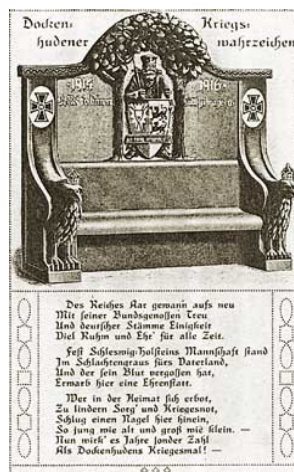 Docken- Kriegs-
hudener wahrzeichen
1914 1916
Des Reiches Aar gewann aufs neu
Mit seiner Bundsgenossen Treu
Und deutscher Stämme Einigkeit
Viel Ruhm und Ehr' für alle Zeit.
Fest Schleswig-Holsteins Mannschaft stand
Im Schlachtengraus fürs Vaterland,
Und der sein Blut vergossen hat,
Erwarb hier eine Ehrenstatt.
Wer in der Heimat sich erbot,
Zu lindern Sorg' und Kriegesnot,
Schlug einen Nagel hier hinein,
So jung wie alt und groß wie klein. —
Nun wirk' es Jahre sonder Zahl
Als Dockenhudens Kriegesmal! —